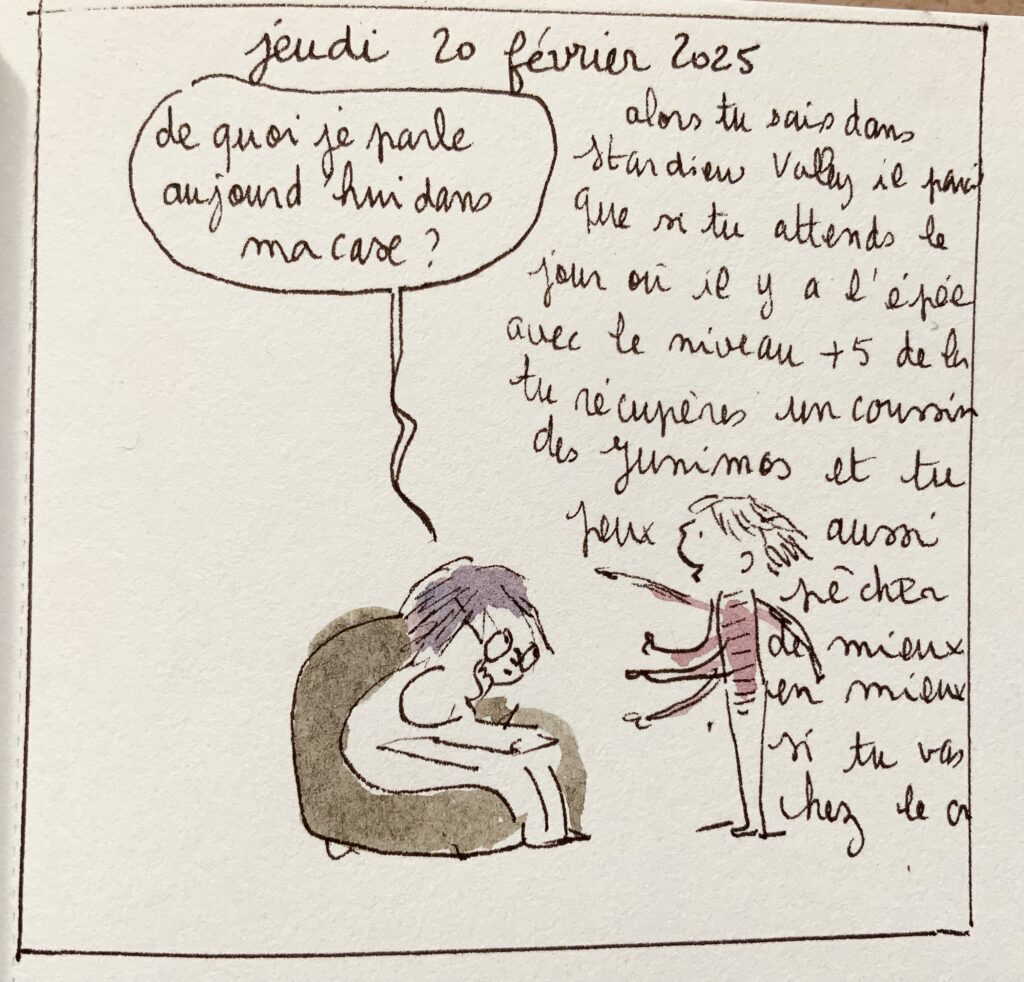 jeudi 20 février 2025
de quoi je parle
aujourd'hui dans
ma case ?
alors tu sais dans
stardieu Valley il parai
que si tu attends le
jour où il y a l'épée
avec le niveau +5 de la
tu récupères un coussin
des Junimos et tu
peux aussi
pêcher
de mieux
en mieux
si tu vas
chez le